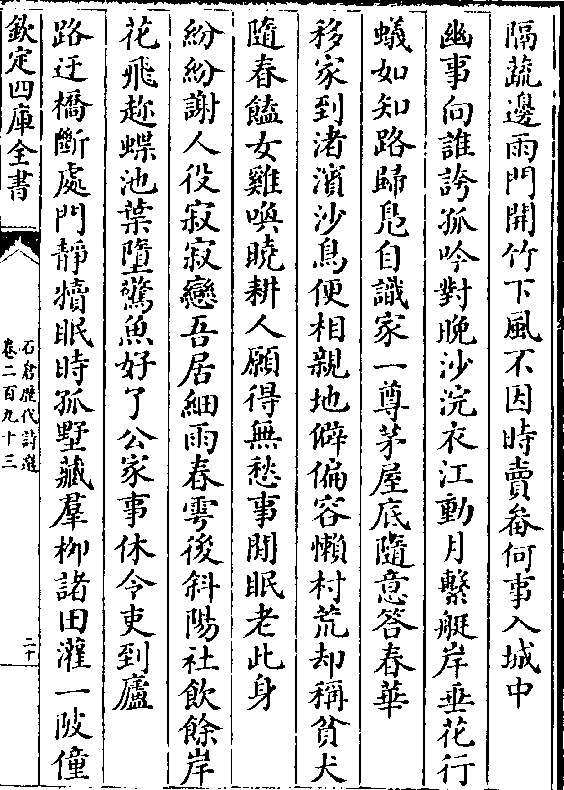 隔蔬邊雨門開竹下風不因時賣畚何事入城中
幽事向誰誇孤吟對晚沙浣衣江動月繫艇岸垂花行
蟻如知路歸鳧自識家一尊茅屋底隨意答春華
移家到渚濱沙鳥便相親地僻偏容懶村荒却稱貧犬
隨春饁女雞喚曉耕人願得無愁事閒眠老此身
紛紛謝人役寂寂戀吾居細雨春雩後斜陽社飲餘岸
花飛趂蝶池葉墮驚魚好了公家事休令吏到廬
路迂橋斷處門靜犢眠時孤墅藏羣栁諸田灌一陂僮
欽定四庫全書
石倉歷代詩選
卷二百九十三
二十